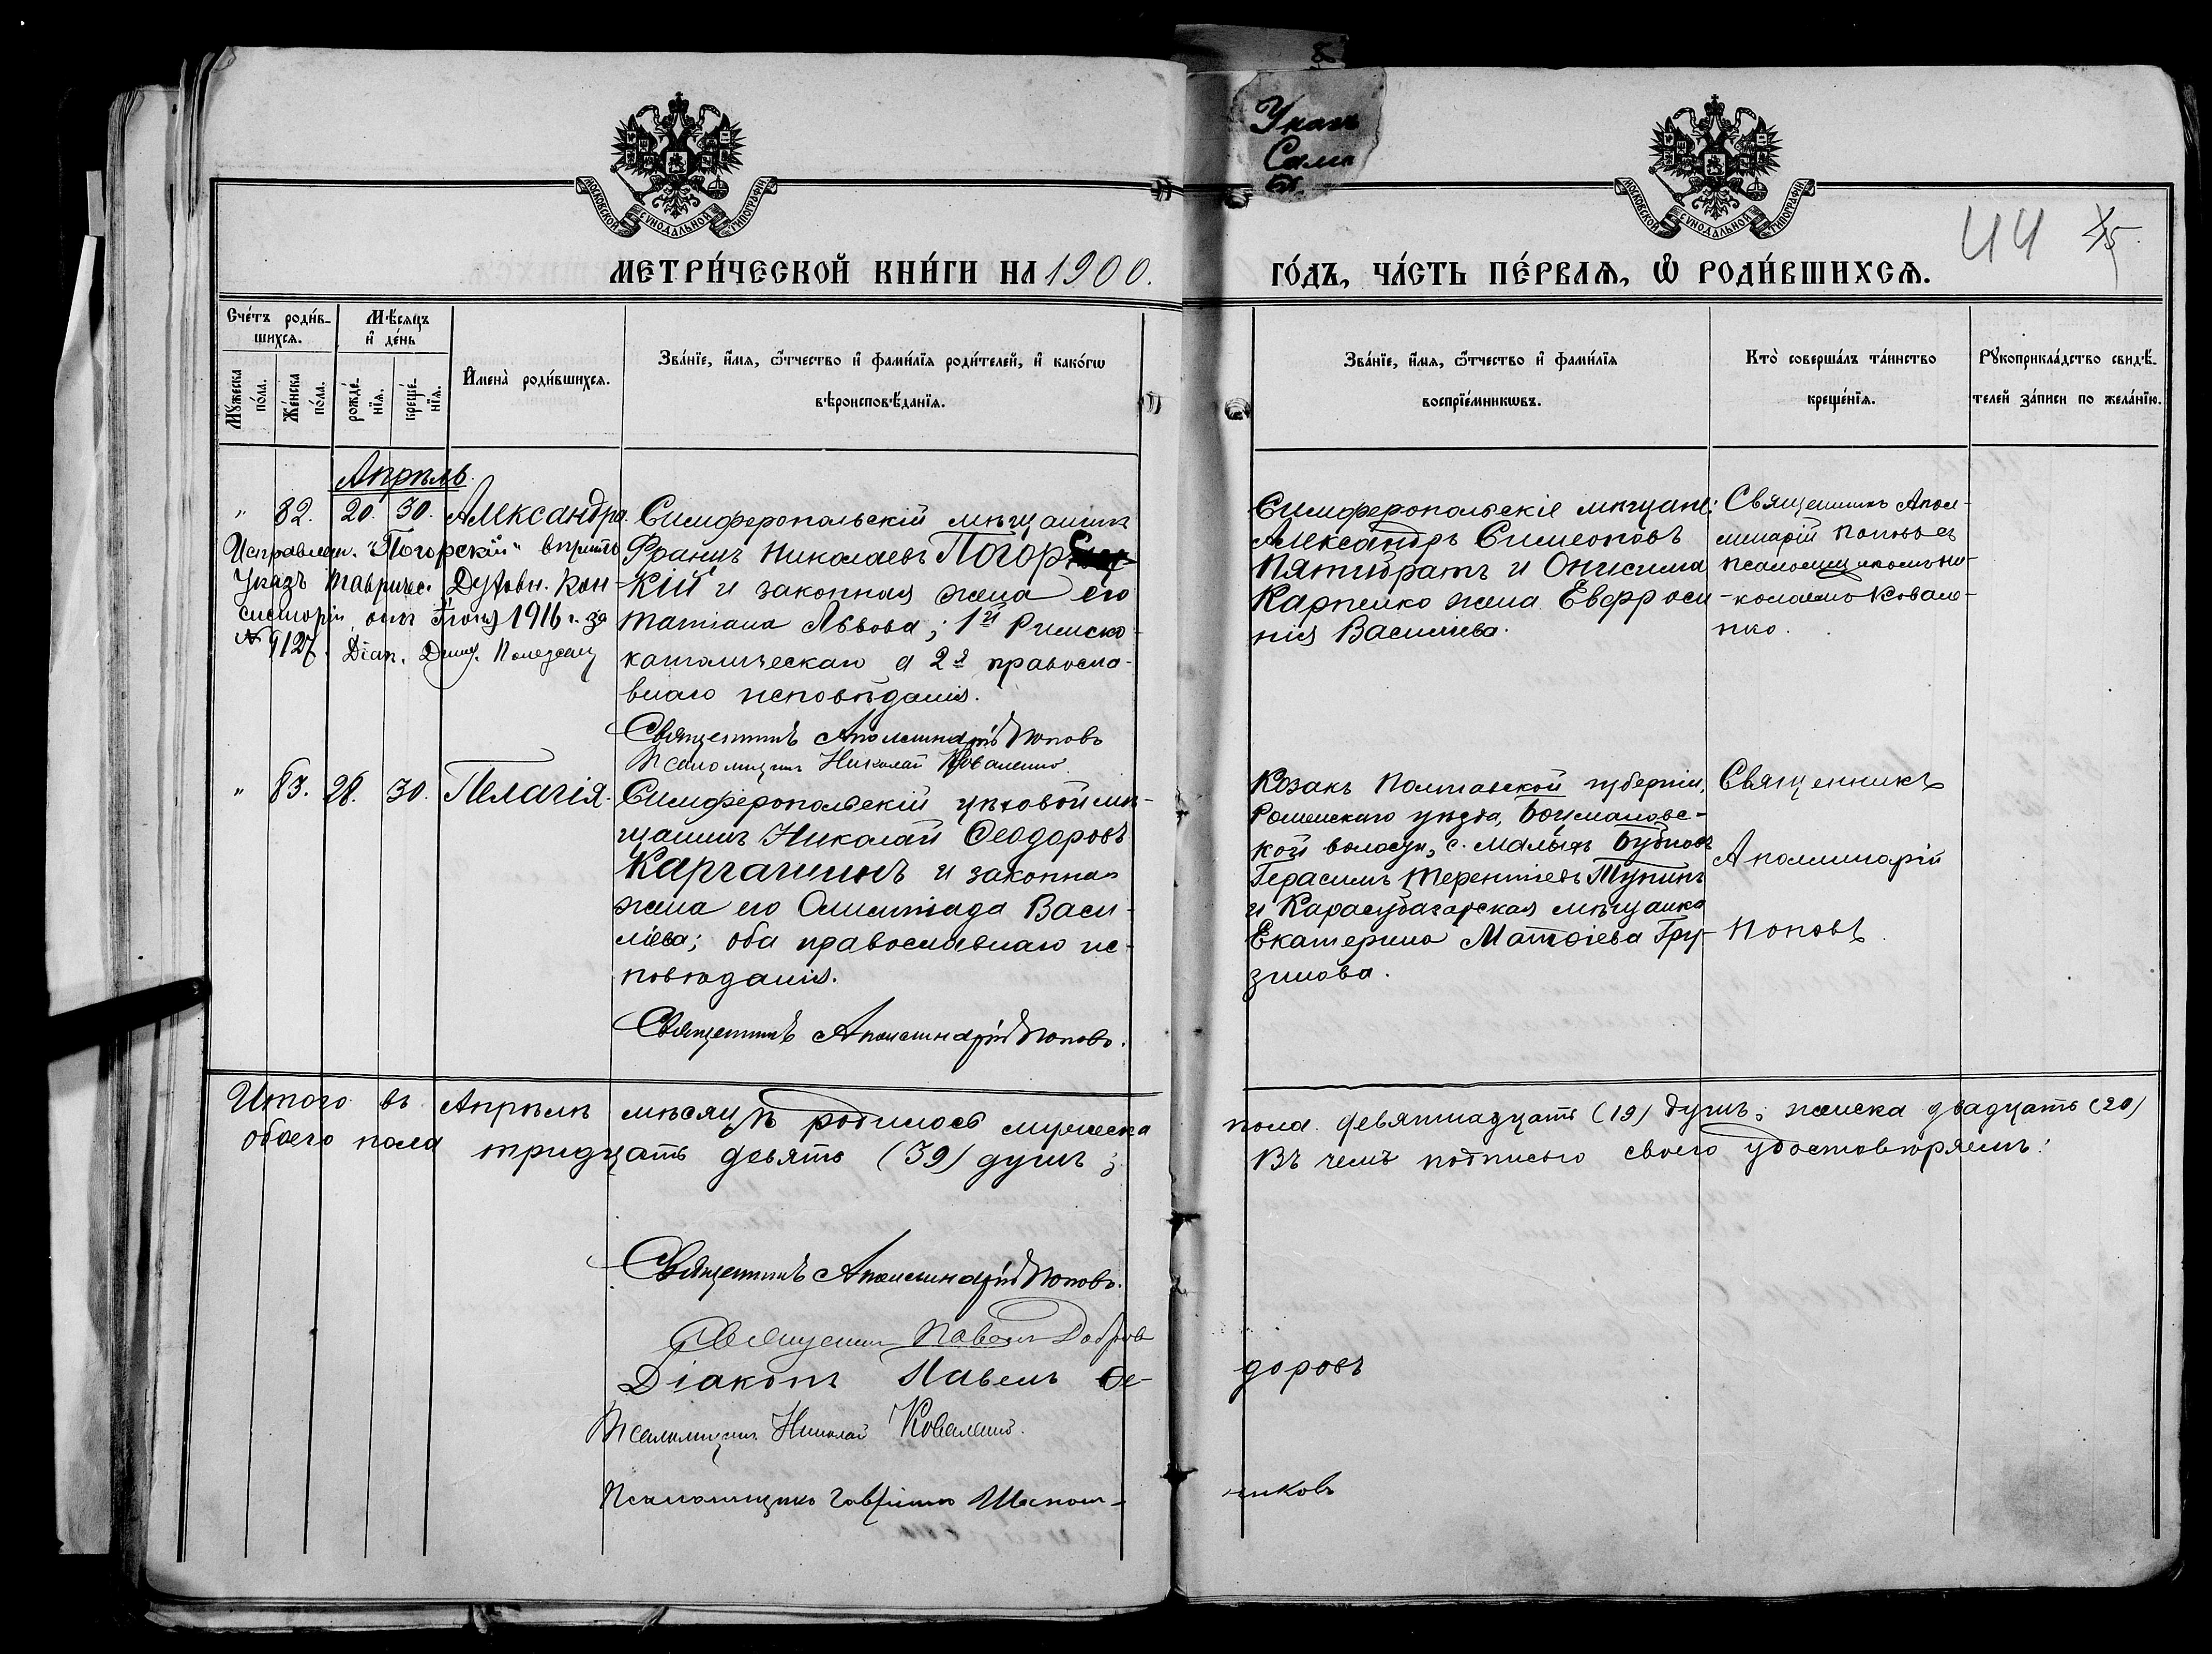 8
Указ
Сим
МОСКОВСКОЙ СУНОДАЛЬНОЙ ТИПОГРАФІИ
МОСКОВСКОЙ СУНОДАЛЬНОЙ ТИПОГРАФІИ
44 45
МЕТРИ́ЧЕСКОЙ КНИ́ГИ НА 1900.
ГО́ДЪ, ЧА́СТЬ ПЕ́РВАѦ, Ѡ РОДИ́ВШИХСѦ.
Сче́тъ роди́в-
шихсѧ.
Мꙋ́жеска
по́ла.
Же́нска
по́ла.
Мѣ́сѧцъ
и де́нь
рожде́-
нїѧ.
креще́-
нїѧ.
Имена̀ роди́вшихсѧ.
Зва́нїе, и́мѧ, ѻ́тчество и фами́лїѧ роди́телей, и како́гѡ
вѣроисповѣ́данїѧ.
Зва́нїе, и́мѧ, ѻ́тчество и фами́лїѧ
воспрїе́мникѡвъ.
Кто̀ соверша́лъ та́инство
креще́нїѧ.
Рꙋкоприкла́дство свидѣ́-
телей за́писи по жела́нїю.
Апрѣль.
" 82. 20. 30. Александра.
Исправлен. "Погорскій"
Указъ Тавричес. Духовн. Кон-
систоріи, отъ 1916 г. за
№ 9127. Діак.
Симферопольскій мѣщанинъ
Францъ Николаевъ Погорс-
кій и законная жена его
Татіана Львова; 1й Римско-
католическаго а 2я правосла-
внаго исповѣданія.
Священникъ Аполлинарій Поповъ
Псаломщикъ Николай Коваленко
Симферопольскіе мѣщане:
Александръ Симеоновъ
Пятибратъ и Онисима
Карпенко жена Евфроси
нія Василіева.
Священникъ Апол-
линарій Поповъ съ
псаломщикомъ Ни-
колаемъ Ковале-
нко.
" 83. 28. 30. Пелагія.
Симферопольскій цеховой мѣ-
щанинъ Николай Ѳеодоровъ
Каргашинъ и законная
жена его Олимпіада Васи-
ліева; оба православнаго ис-
повѣданія.
Священникъ Аполлинарій Поповъ.
Козакъ Полтавской губерніи,
Роменскаго уѣзда,
кой волости, с. Малыхъ Бубновъ
Герасимъ Терентіевъ Тупинъ
и Карасубазарская мѣщанка
Екатерина Матѳіева Гру-
зинова.
Священникъ
Аполлинарій
Поповъ.
Итого въ Апрѣлѣ мѣсяцѣ родилось мужеска
пола девятнадцать (19) душъ; женска двадцать (20)
обоего пола тридцать девять (39) душъ;
Въ чемъ подписью своею удостовѣряемъ:
Священникъ Аполлинарій Поповъ.
Священникъ Павелъ Добров
Діаконъ Павелъ Ѳе-
доровъ
Псаломщикъ Николай Коваленко.
Псаломщикъ Гавріилъ Шапош-
никовъ